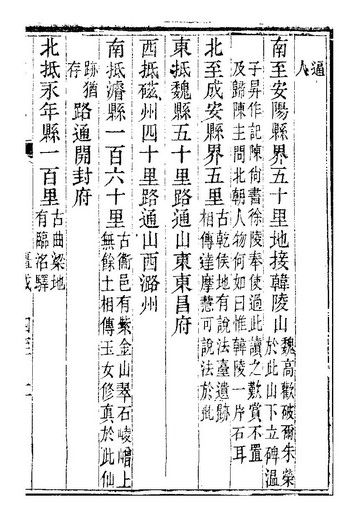 逼
人
南至安陽縣界五十里地接韓陵山魏高歡破爾朱榮
於此山下立碑溫
子昇作記陳尚書徐陵奉使過此讀之歎賞不置
及歸陳主問北朝人物何如曰惟韓陵一片石耳
北至成安縣界五里古乾侯地有說法臺遺跡
相傳達摩慧可說法於此
東抵魏縣五十里路通山東東昌府
西抵磁州四十里路通山西潞州
南抵濬縣一百六十里古衛邑有紫金山翠石崚嶒上
無餘土相傳玉女修真於此仙
跡猶
存
路通開封府
北抵永年縣一百里古曲梁地
有臨洺驛